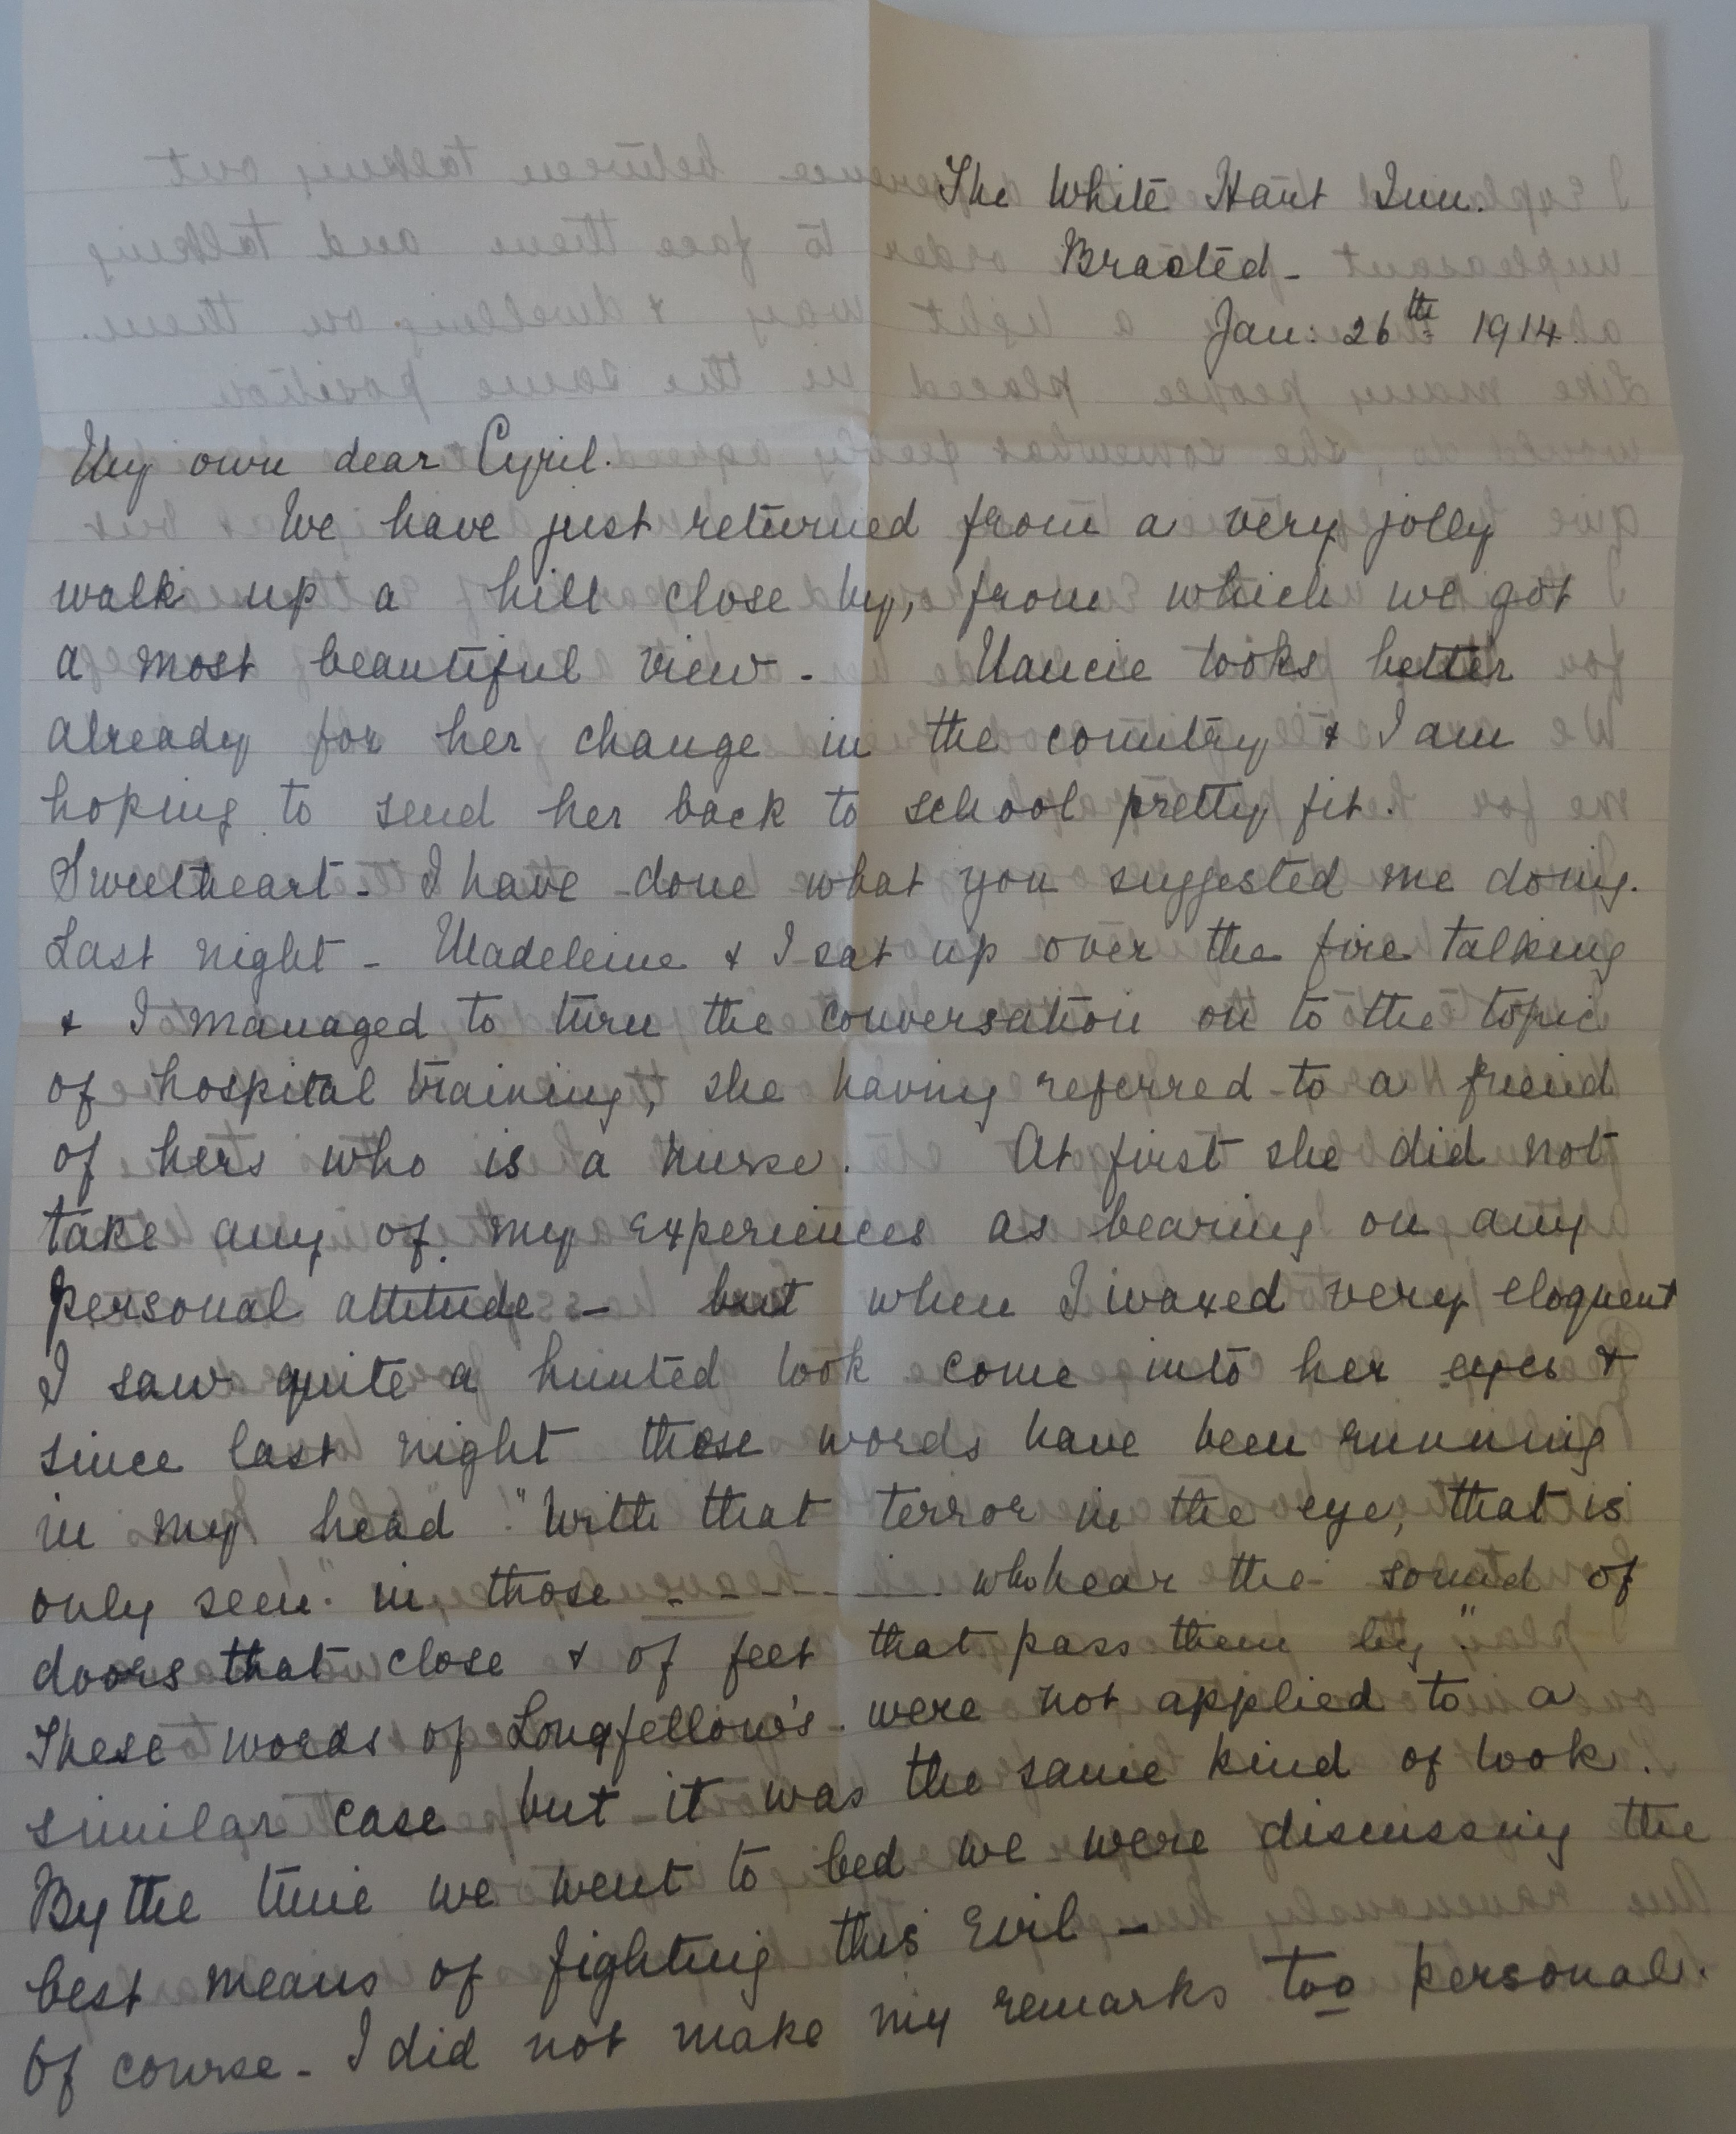 The White Hart Inn.
Brasted -
Jan: 26th 1914.
My own dear Cyril.
We have just returned from a very jolly
walk up a hill close by, from which we got
a most beautiful view - Nancie looks better
already for her change in the country & I am
hoping to send her back to school pretty fit.
Sweetheart - I have done what you suggested me doing.
Last night - Madeleine & I sat up over the fire talking
& I managed to turn the conversation on to the topic
of hospital training, she having referred to a friend
of hers who is a nurse. At first she did not
take any of my experiences as bearing on any
personal attitude - but when I waxed very eloquent
I saw quite a hunted look come into her eyes &
since last night those words have been running
in my head "With that terror in the eye, that is
only seen" in those - - - - - who hear the sound of
doors that close & of feet that pass them by."
These words of Longfellow's were not applied to a
similar case but it was the same kind of look.
By the time we went to bed we were discussing the
best means of fighting this Evil -
Of course - I did not make my remarks too personal.